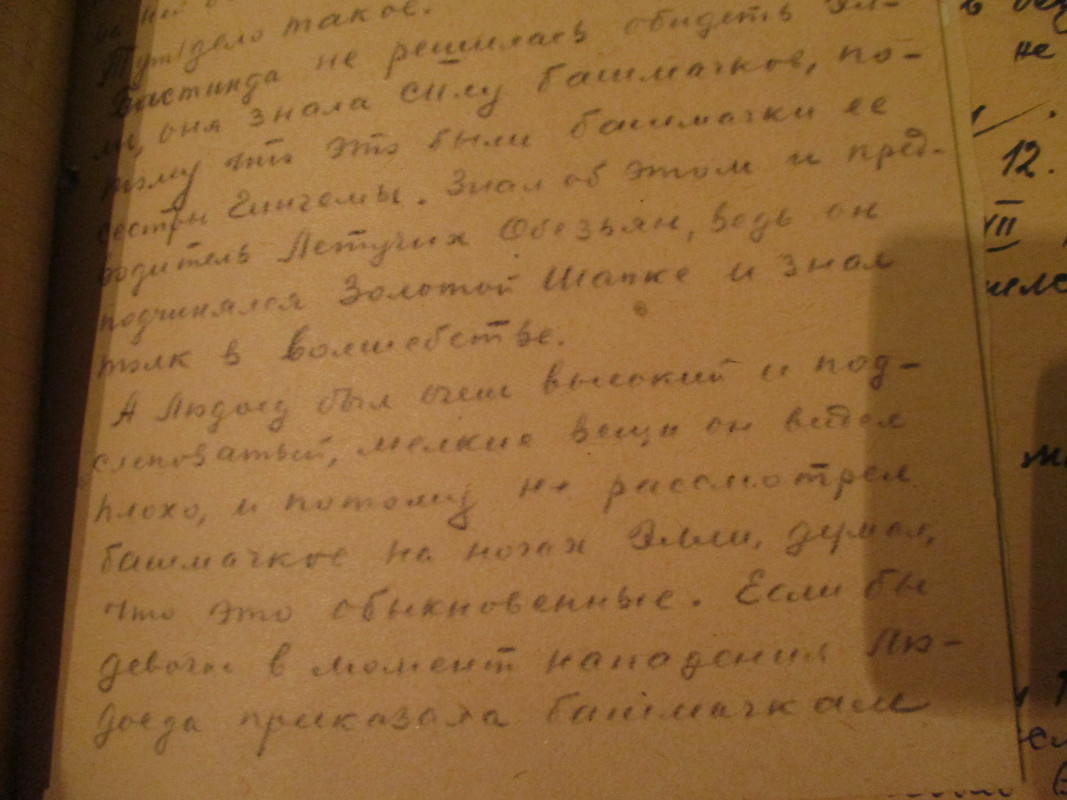 Тут дело такое.
Бастинда не решилась обидеть Эл-
ли, она знала силу башмачков, по-
тому что это были башмачки ее
сестры Гингемы. Знал об этом и пред-
водитель Летучих Обезьян, ведь он
подчинялся Золотой Шапке и знал
толк в волшебстве.
А Людоед был очень высокий и под-
слеповатый, мелкие вещи он видел
плохо, и потому не рассмотрел
башмачков на ногах Элли, думал,
что это обыкновенные. Если бы
девочка в момент нападения Лю-
доеда приказала башмачкам
не
12.
VII